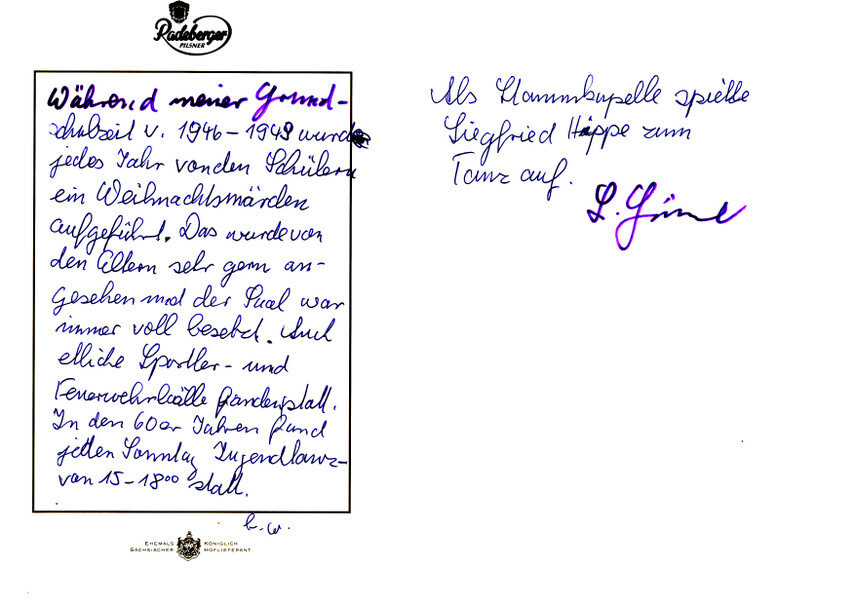 Radeberger
PILSNER
Während meiner Grund-
schulzeit v. 1946-1949 wurde
jedes Jahr von den Schülern
ein Weihnachtsmärchen
aufgeführt. Das wurde von
den Eltern sehr gern an-
gesehen und der Saal war
immer voll besetzt. Auch
etliche Sportler- und
Feuerwehrbälle fanden statt.
In den 60er Jahren fand
jeden Sonntag Jugendtanz
von 15-18⁰⁰ statt.
b.w.
EHEMALS KÖNIGLICH
SÄCHSISCHER HOFLIEFERANT
Als Stammkapelle spielte
Siegfried Höppe zum
Tanz auf.